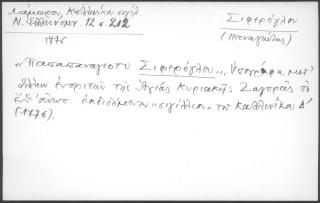 Λάμπρου, Καλλινίκου σιγίλ.
Ν. Ἑλληνομν. 12 σ. 212
1775
Σιφερόγλου
(Παναγιώτης)
"Παπαπαναγιοτο Σιφερόγλου,, Ὑπογράφει μετ'
ἄλλων ἐνοριτῶν τῆς Ἁγίας Κυριακῆς Ζαγορᾶς τὸ
ἐκδιδόμενον "σιγίλλιον" τοῦ Καλλινίκου Δ'
(1775).